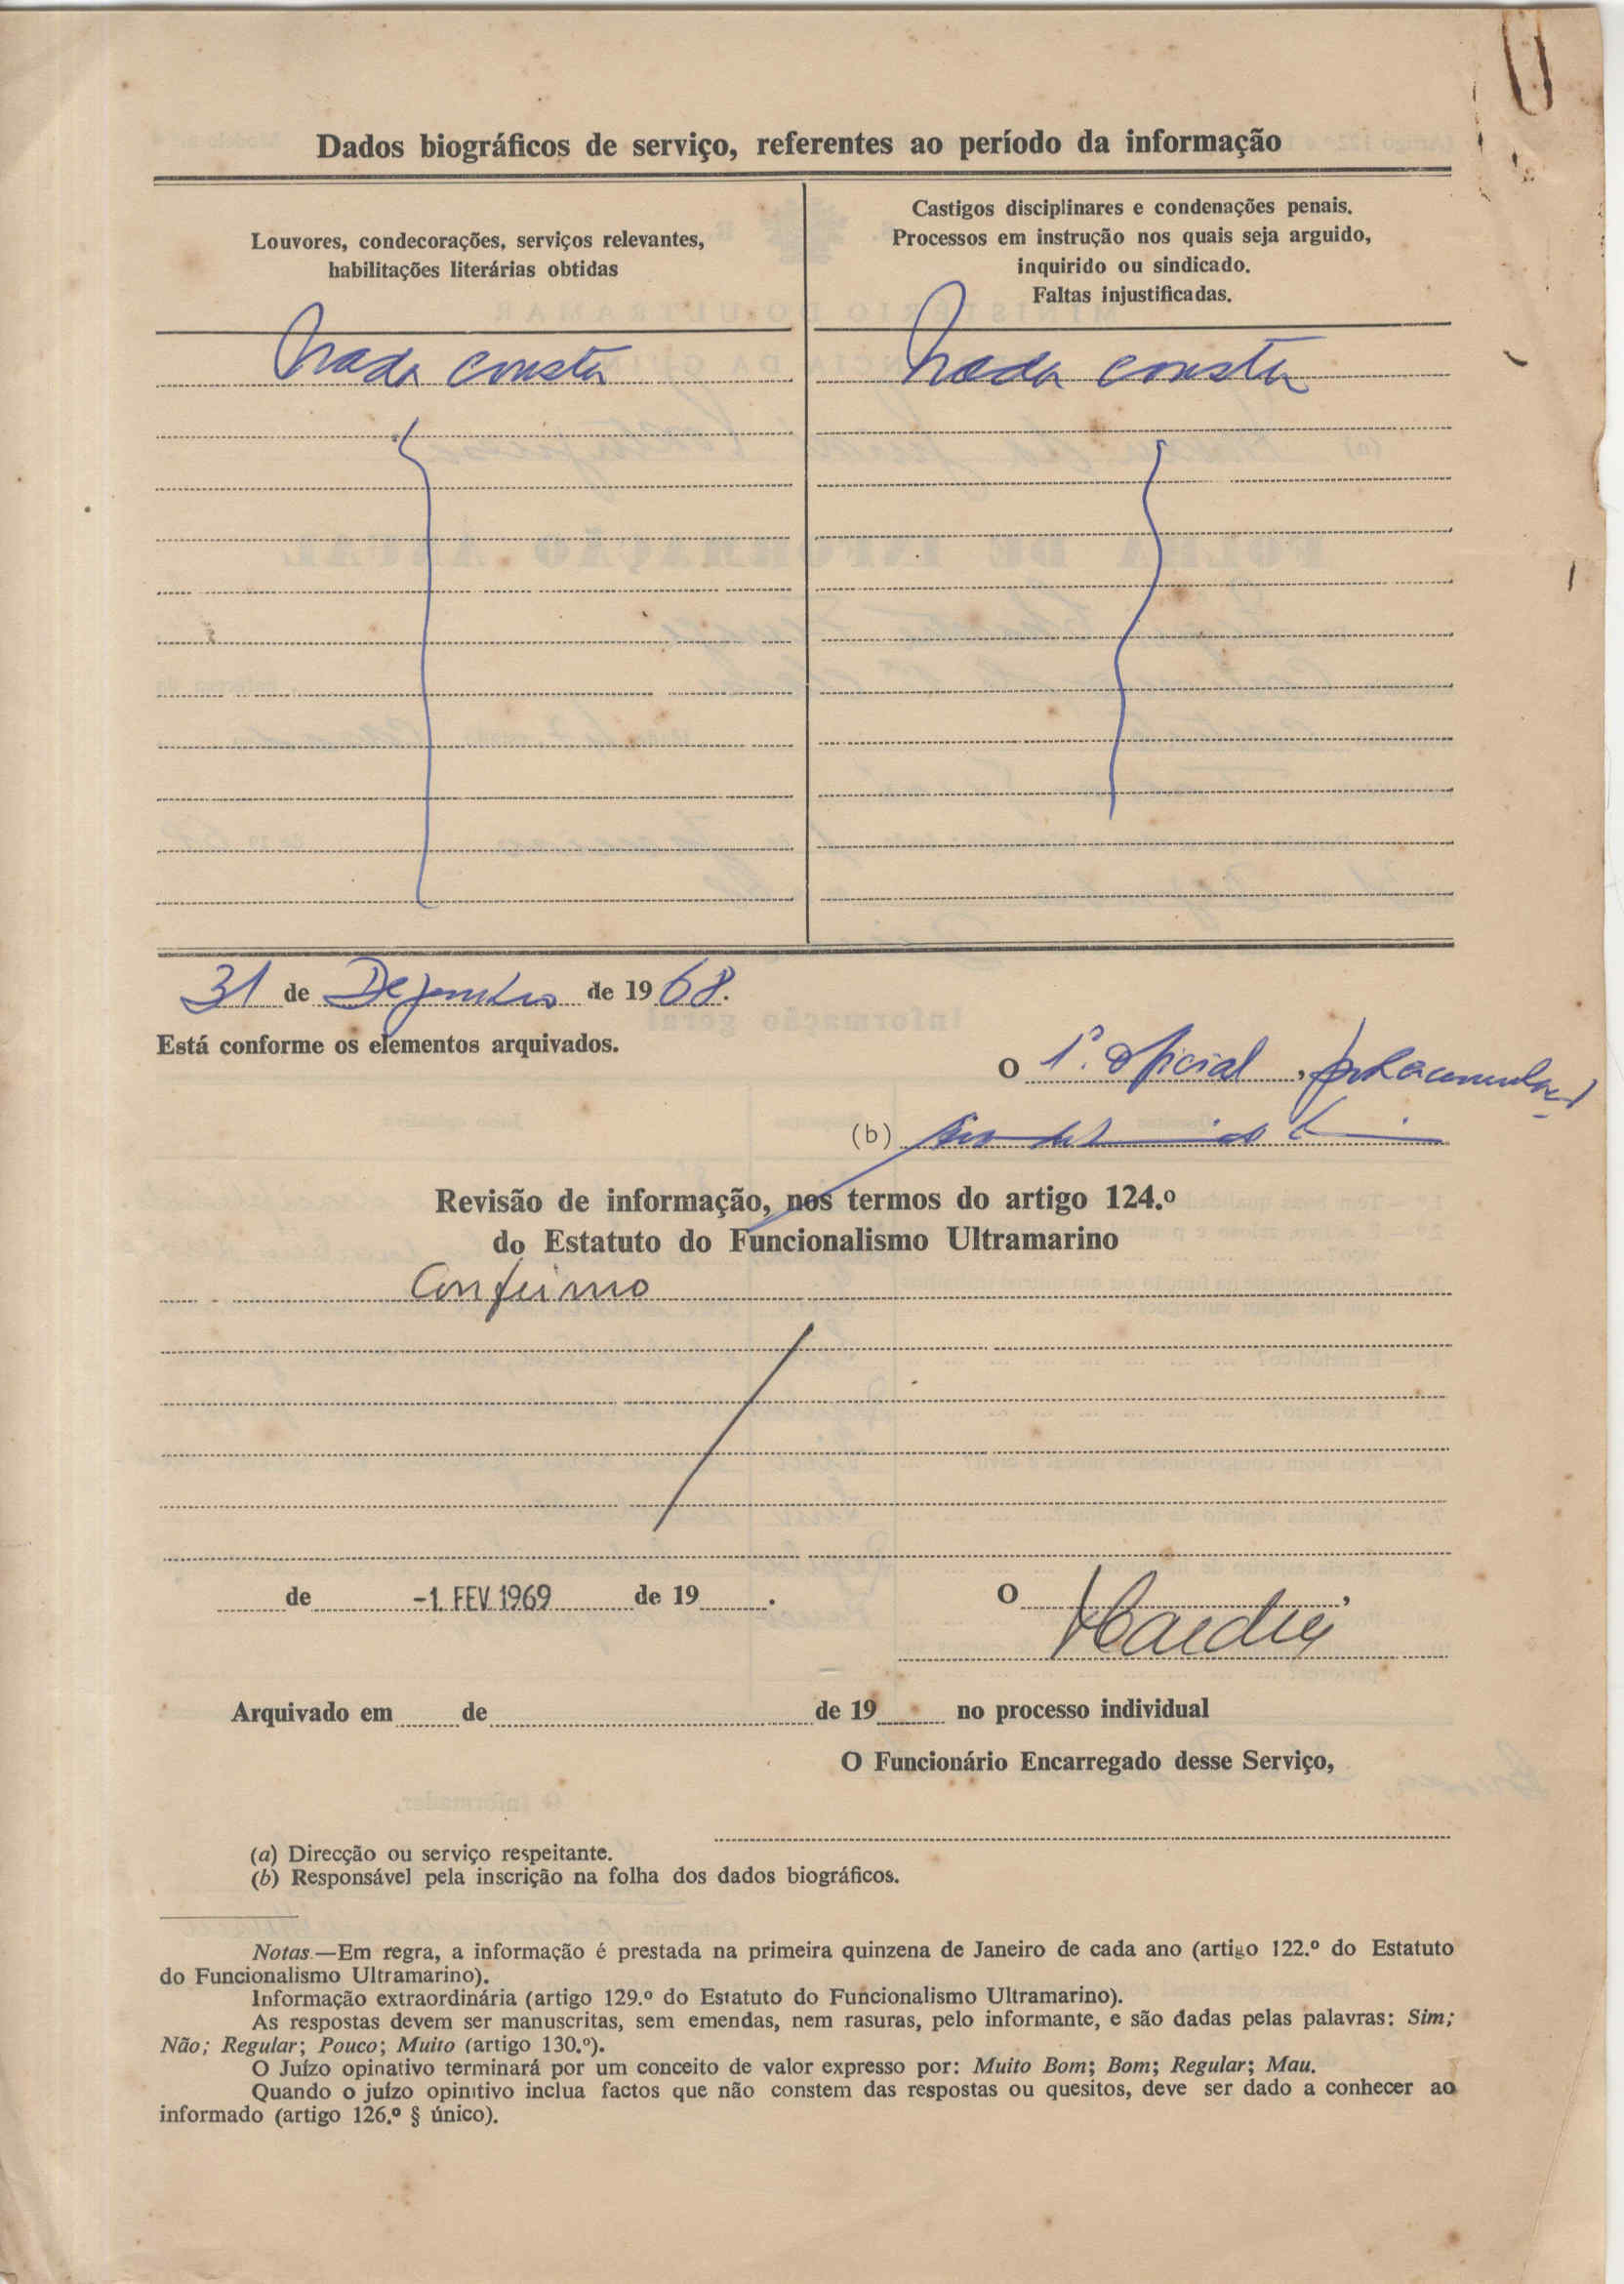 Dados biográficos de serviço, referentes ao período da informação
Louvores, condecorações, serviços relevantes,
habilitações literárias obtidas
Nada consta
Castigos disciplinares e condenações penais.
Processos em instrução nos quais seja arguido,
inquirido ou sindicado.
Faltas injustificadas.
Nada consta
31 de Dezembro de 1968.
Está conforme os elementos arquivados.
O 1º. Oficial,
(b)
Revisão de informação, nos termos do artigo 124.º
do Estatuto do Funcionalismo Ultramarino
Confirmo
de -1. FEV. 1969 de 19 .
O ,
Arquivado em de de 19 no processo individual
O Funcionário Encarregado desse Serviço,
(a) Direcção ou serviço respeitante.
(b) Responsável pela inscrição na folha dos dados biográficos.
Notas.—Em regra, a informação é prestada na primeira quinzena de Janeiro de cada ano (artigo 122.º do Estatuto
do Funcionalismo Ultramarino).
Informação extraordinária (artigo 129.º do Estatuto do Funcionalismo Ultramarino).
As respostas devem ser manuscritas, sem emendas, nem rasuras, pelo informante, e são dadas pelas palavras: Sim;
Não; Regular; Pouco; Muito (artigo 130.º).
O Juízo opinativo terminará por um conceito de valor expresso por: Muito Bom; Bom; Regular; Mau.
Quando o juízo opinitivo inclua factos que não constem das respostas ou quesitos, deve ser dado a conhecer ao
informado (artigo 126.º § único).